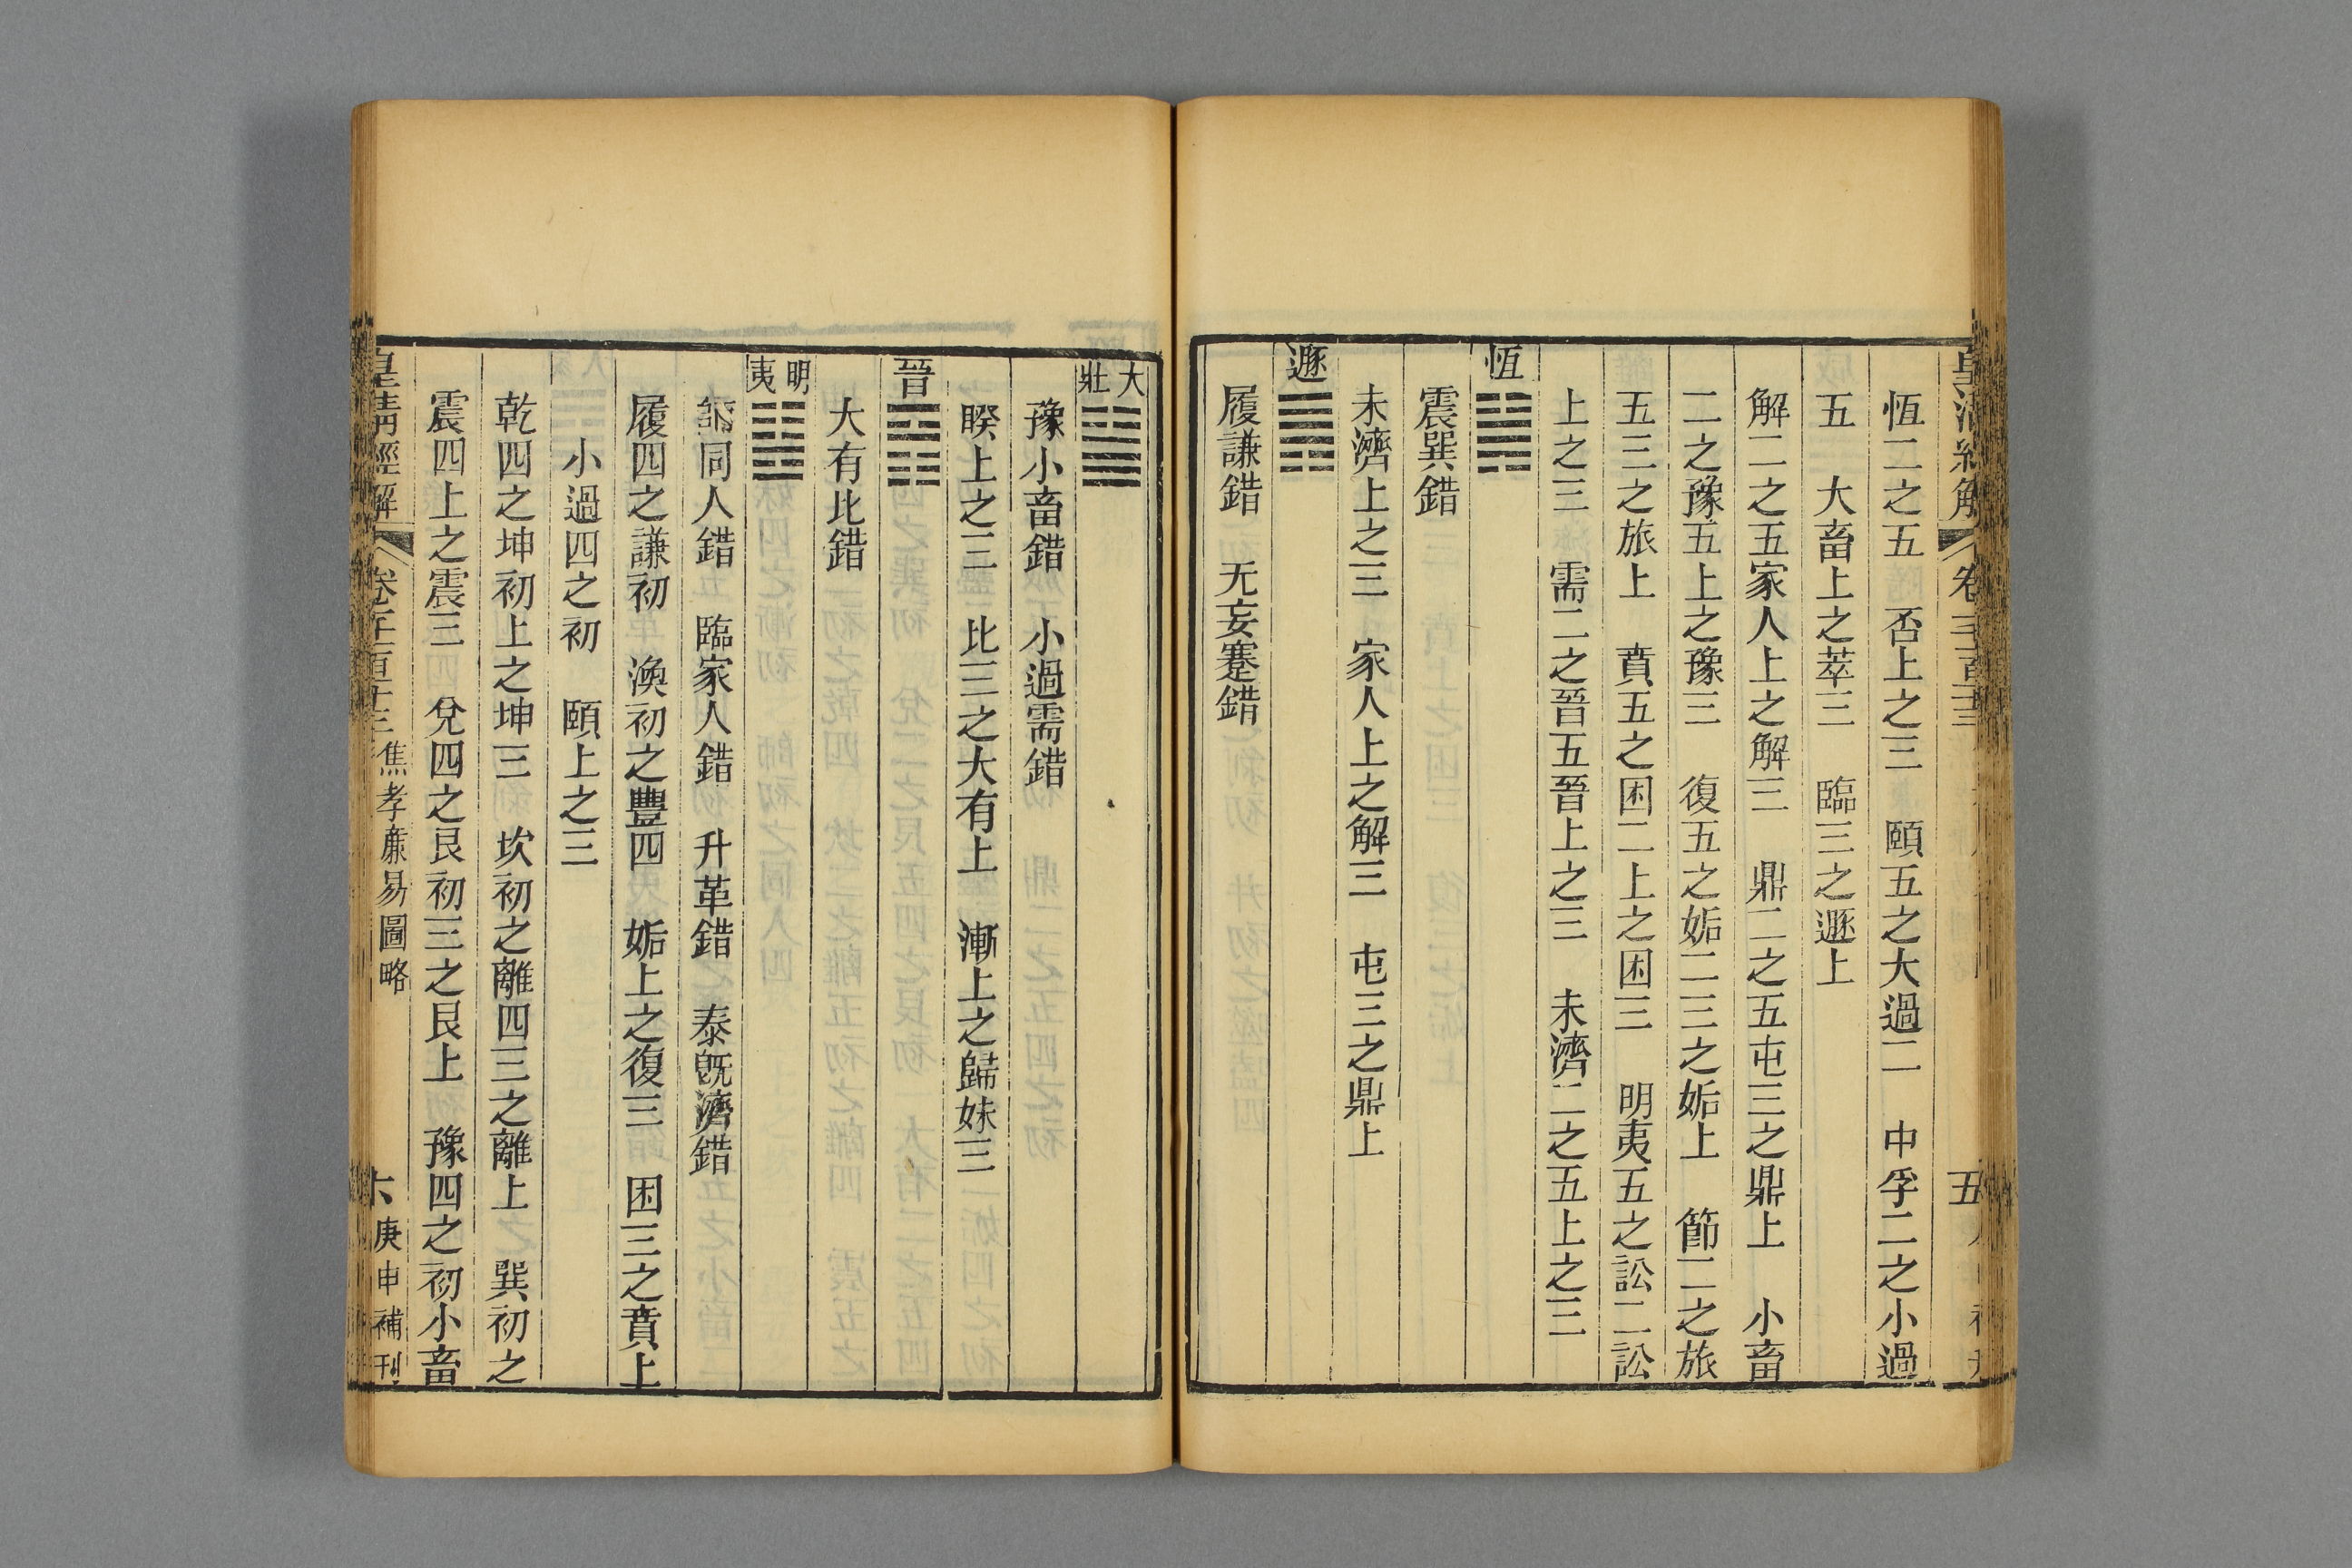 皇清經解 卷 五
恆二之五　否上之三　頤五之大過二　中孚二之小過
五　大畜上之萃三　臨三之遯上
解二之五家人上之解三　鼎二之五屯三之鼎上　小畜
二之豫五上之豫三　復五之姤二三之姤上　節二之旅
五三之旅上　賁五之困二上之困三　明夷五之訟二訟
上之三　需二之晉五晉上之三　未濟二之五上之三
恆䷟
震巽錯
未濟上之三　家人上之解三　屯三之鼎上
遯䷠
履謙錯　无妄蹇錯
大壯䷡
豫小畜錯　小過需錯
睽上之三　比三之大有上　漸上之歸妹三
晉䷢
大有比錯
明夷䷣
師同人錯　臨家人錯　升革錯　泰旣濟錯
履四之謙初　渙初之豐四　姤上之復三　困三之賁上
小過四之初　頤上之三
乾四之坤初上之坤三　坎初之離四三之離上　巽初之
震四上之震三　兌四之艮初三之艮上　豫四之初小畜
皇清經解 卷 焦孝廉易圖略 六 庚申補刊